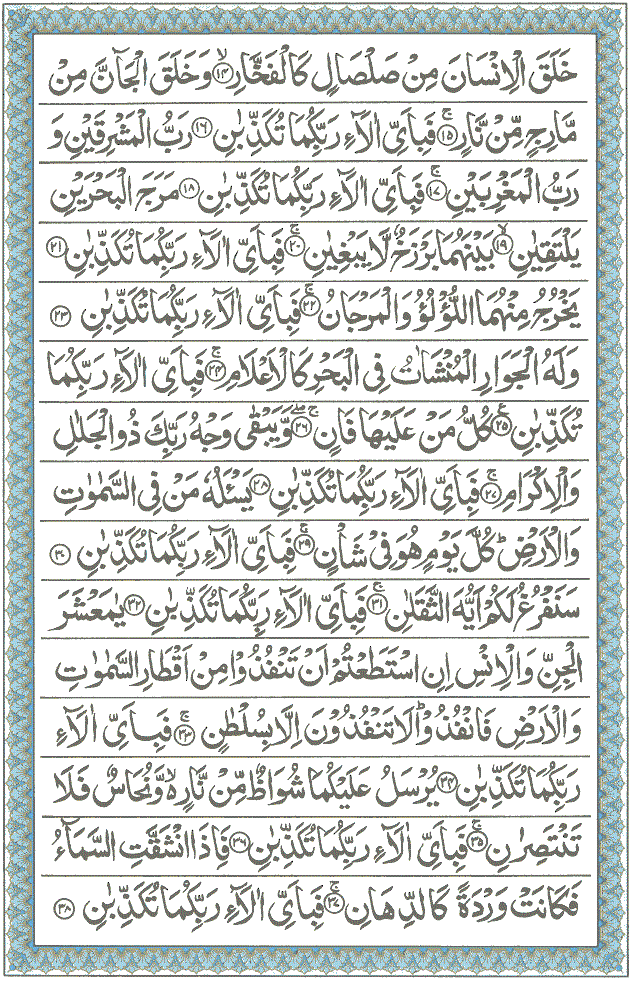 خَلَقَ الْاِنْسَانَ مِنْ صَلْصَالٍ كَالْفَخَّارِۙ﴿۱۴﴾ وَخَلَقَ الْجَآنَّ مِنْ
مَّارِجٍ مِّنْ نَّارٍۚ﴿۱۵﴾ فَبِاَىِّ اٰلَآءِ رَبِّكُمَا تُكَذِّبٰنِ﴿۱۶﴾ رَبُّ الْمَشْرِقَيْنِ وَ
رَبُّ الْمَغْرِبَيْنِۚ﴿۱۷﴾ فَبِاَىِّ اٰلَآءِ رَبِّكُمَا تُكَذِّبٰنِ﴿۱۸﴾ مَرَجَ الْبَحْرَيْنِ
يَلْتَقِيٰنِۙ﴿۱۹﴾ بَيْنَهُمَا بَرْزَخٌ لَّا يَبْغِيٰنِۚ﴿۲۰﴾ فَبِاَىِّ اٰلَآءِ رَبِّكُمَا تُكَذِّبٰنِ﴿۲۱﴾
يَخْرُجُ مِنْهُمَا اللُّؤْلُؤُ وَالْمَرْجَانُۚ﴿۲۲﴾ فَبِاَىِّ اٰلَآءِ رَبِّكُمَا تُكَذِّبٰنِ﴿۲۳﴾
وَلَهُ الْجَوَارِ الْمُنْشَاٰتُ فِى الْبَحْرِ كَالْاَعْلَامِۚ﴿۲۴﴾ فَبِاَىِّ اٰلَآءِ رَبِّكُمَا
تُكَذِّبٰنِ﴿۲۵﴾ كُلُّ مَنْ عَلَيْهَا فَانٍۚۖ﴿۲۶﴾ وَّيَبْقٰى وَجْهُ رَبِّكَ ذُو الْجَلٰلِ
وَالْاِكْرَامِۚ﴿۲۷﴾ فَبِاَىِّ اٰلَآءِ رَبِّكُمَا تُكَذِّبٰنِ﴿۲۸﴾ يَسْئَلُهٗ مَنْ فِى السَّمٰوٰتِ
وَالْاَرْضِؕ كُلَّ يَوْمٍ هُوَ فِىْ شَاْنٍۚ﴿۲۹﴾ فَبِاَىِّ اٰلَآءِ رَبِّكُمَا تُكَذِّبٰنِ﴿۳۰﴾
سَنَفْرُغُ لَكُمْ اَيُّهَ الثَّقَلٰنِۚ﴿۳۱﴾ فَبِاَىِّ اٰلَآءِ رَبِّكُمَا تُكَذِّبٰنِ﴿۳۲﴾ يٰمَعْشَرَ
الْجِنِّ وَالْاِنْسِ اِنِ اسْتَطَعْتُمْ اَنْ تَنْفُذُوْا مِنْ اَقْطَارِ السَّمٰوٰتِ
وَالْاَرْضِ فَانْفُذُوْاؕ لَا تَنْفُذُوْنَ اِلَّا بِسُلْطٰنٍۚ﴿۳۳﴾ فَبِاَىِّ اٰلَآءِ
رَبِّكُمَا تُكَذِّبٰنِ﴿۳۴﴾ يُرْسَلُ عَلَيْكُمَا شُوَاظٌ مِّنْ نَّارٍ ۙ وَّنُحَاسٌ فَلَا
تَنْتَصِرٰنِۚ﴿۳۵﴾ فَبِاَىِّ اٰلَآءِ رَبِّكُمَا تُكَذِّبٰنِ﴿۳۶﴾ فَاِذَا انْشَقَّتِ السَّمَآءُ
فَكَانَتْ وَرْدَةً كَالدِّهَانِۚ﴿۳۷﴾ فَبِاَىِّ اٰلَآءِ رَبِّكُمَا تُكَذِّبٰنِ﴿۳۸﴾